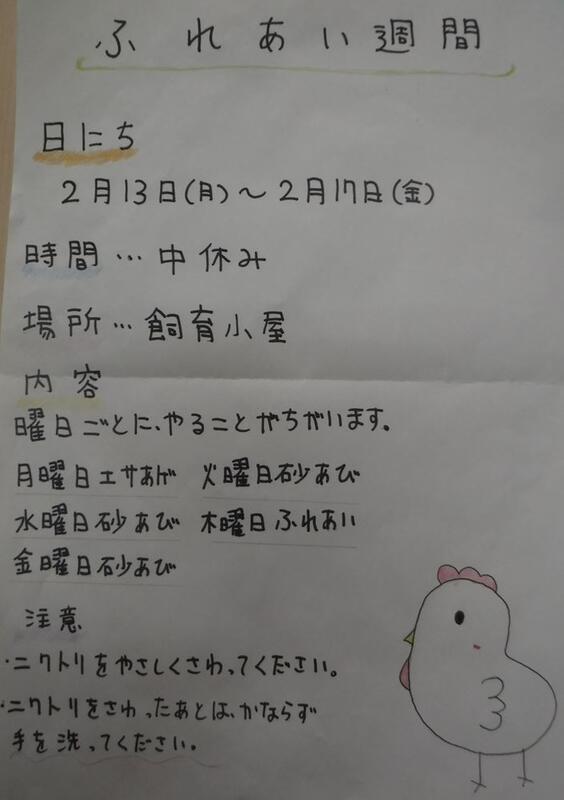 ふれあい週間
日にち
2月13日(月)～2月17日(金)
時間…中休み
場所…飼育小屋
内容
曜日ごとに、やることがちがいます。
月曜日エサあげ 火曜日砂あび
水曜日砂あび 木曜日ふれあい
金曜日砂あび
注意
・ニワトリをやさしくさわってください。
・ニワトリをさわったあとは、かならず
手を洗ってください。